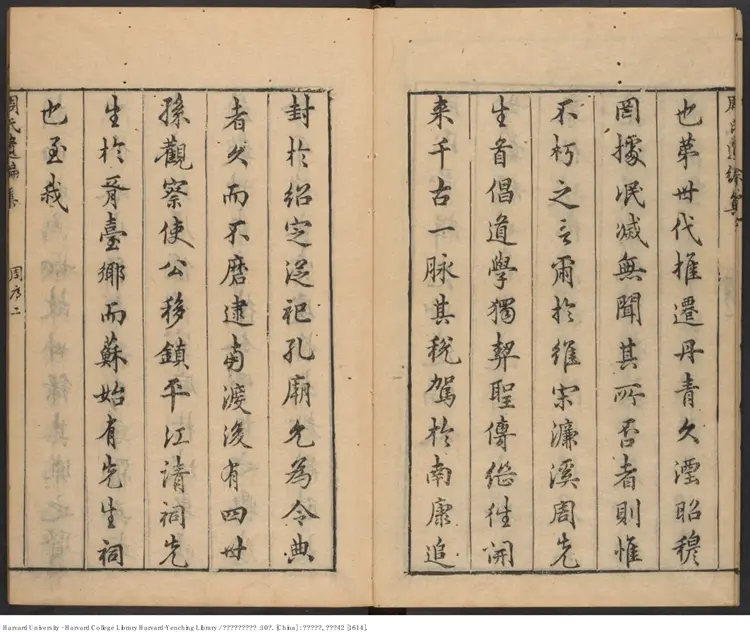 也第世代推遷丹青久湮昭穆
罔據泯滅無聞其所否者則惟
不朽之言爾於維宋濂溪周先
生首倡道學獨契聖傳繼往開
来千古一脉其稅駕於南康追
封於紹定從祀孔廟允為令典
者久而不磨逮南渡後有四世
孫觀察使公移鎮平江請祠先
生於胥臺鄉而蘇始有先生祠
也至哉
周序二
Harvard University - Harvard College Library Harvard-Yenching Library / ????????? :30?. [China] : ?????, ???42 [1614].